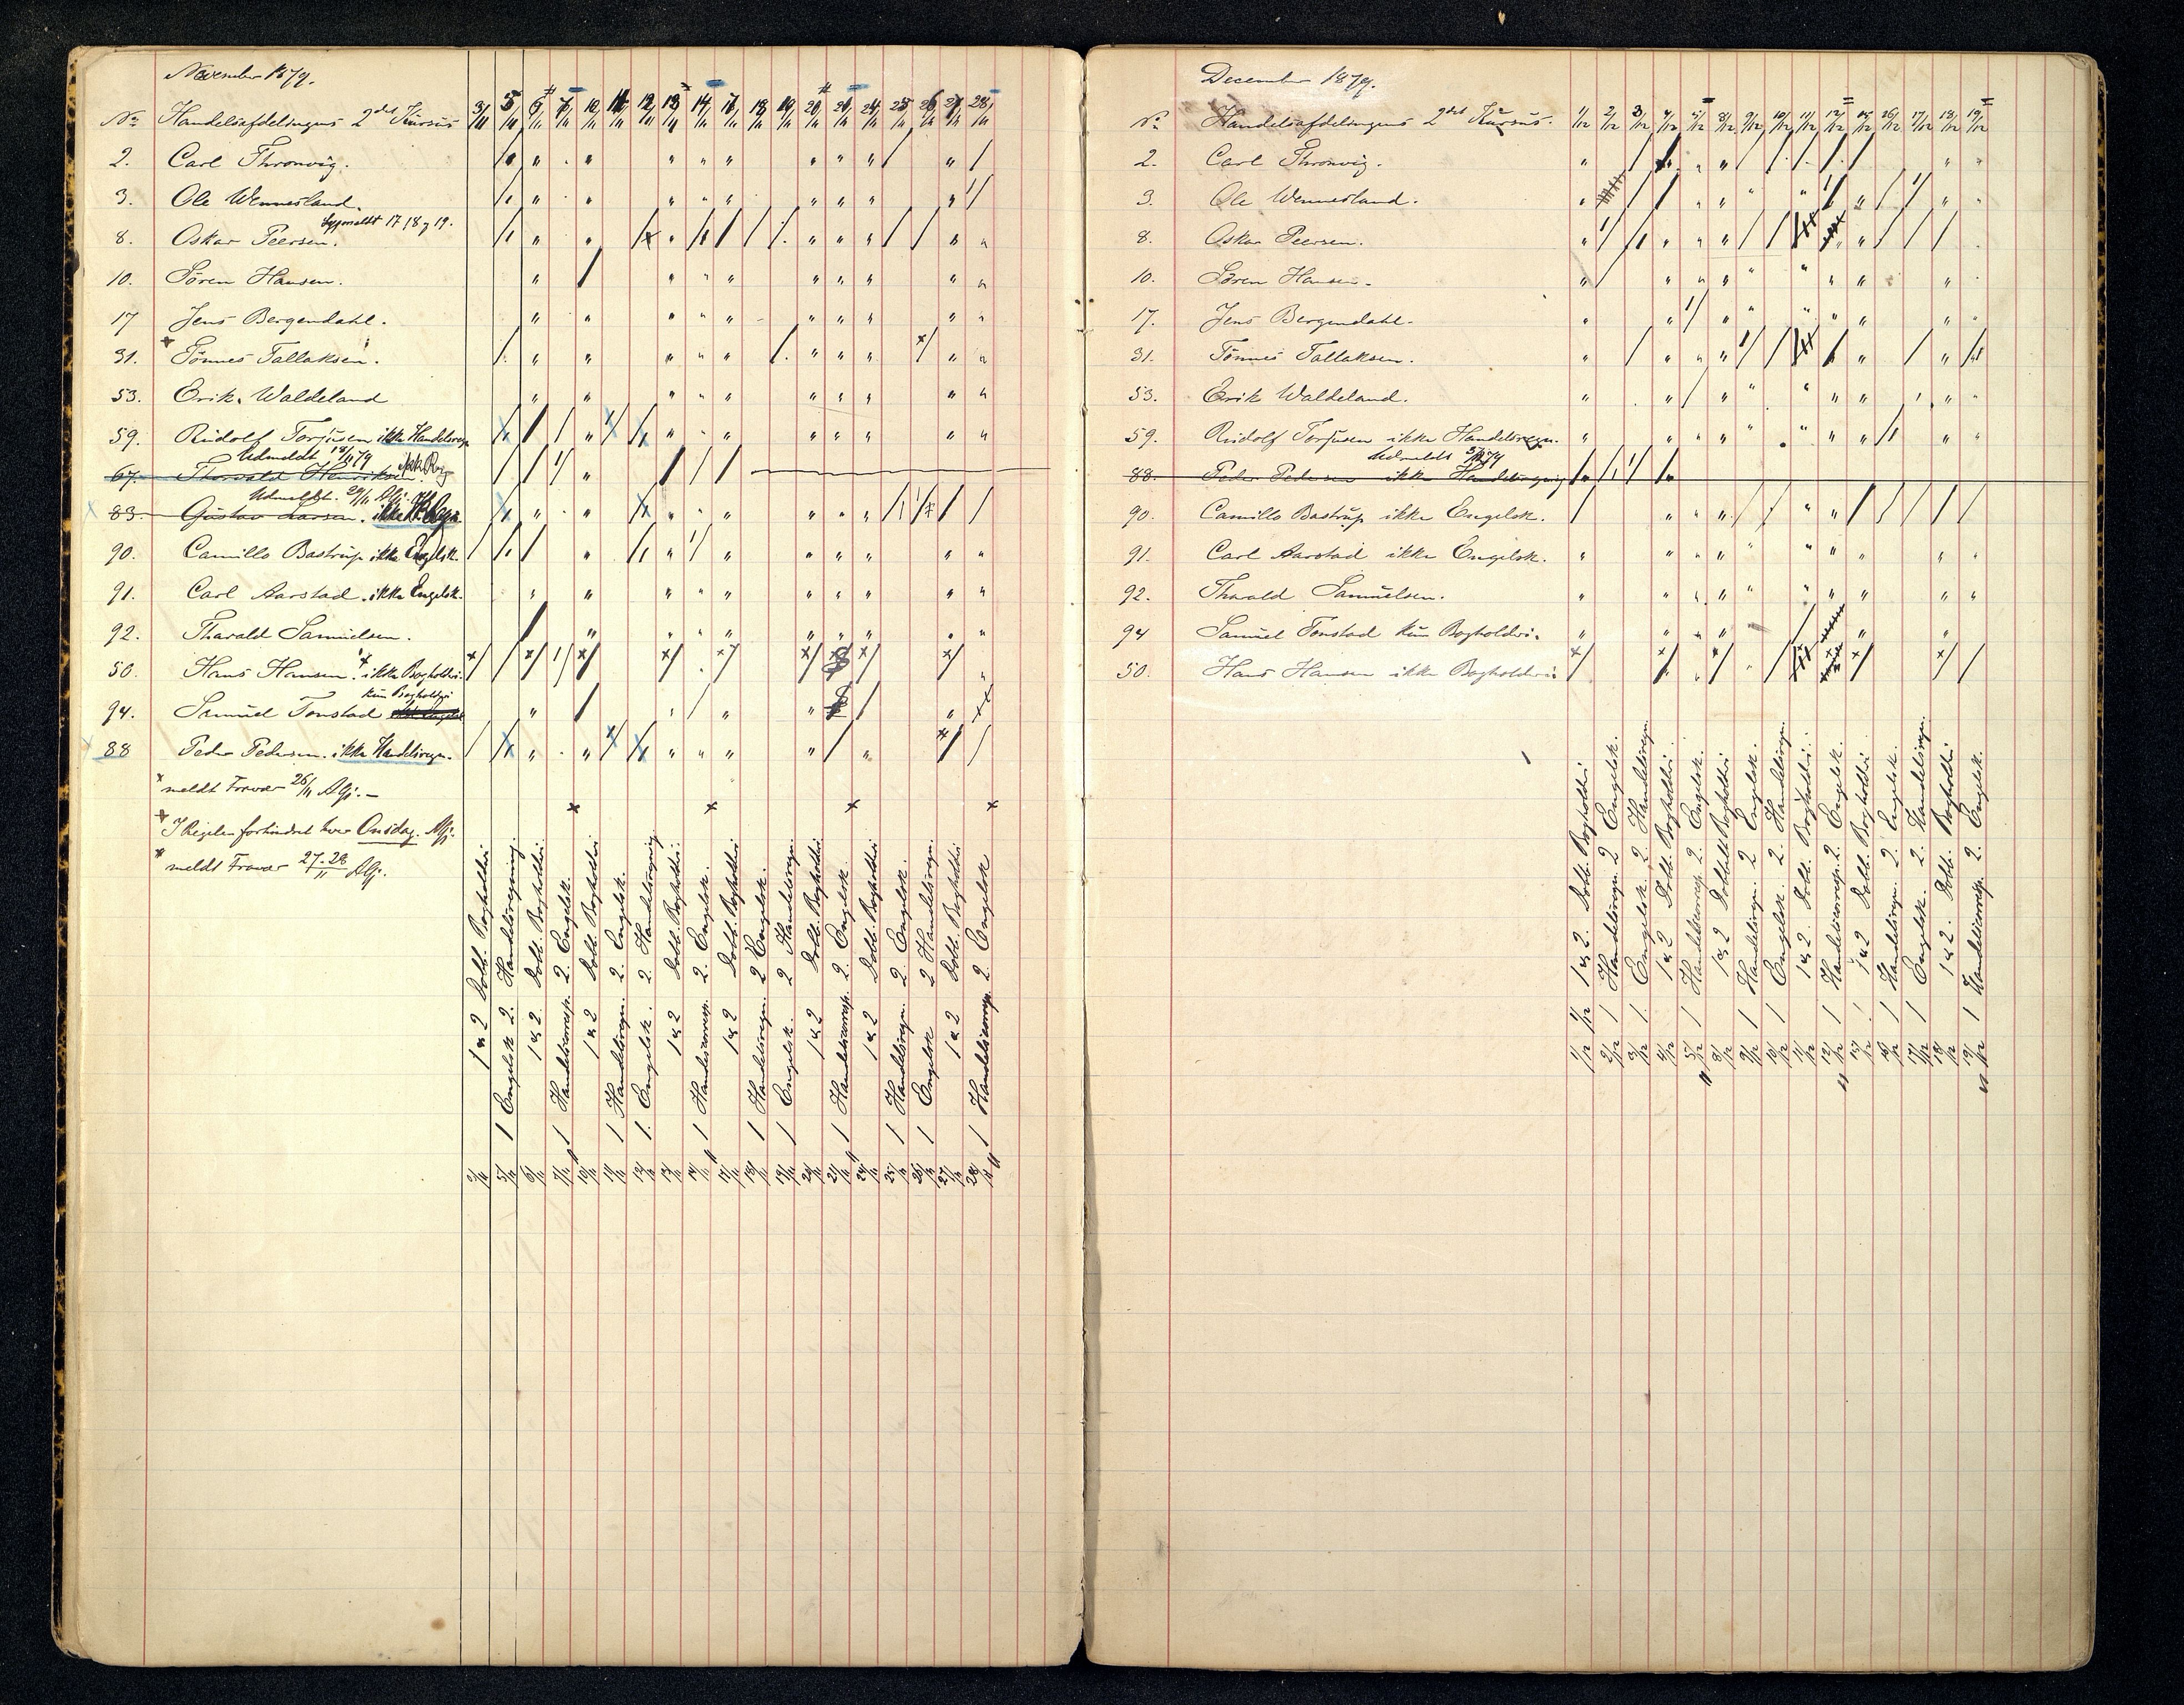 November 1879.
No Handelsafdelingens 2det Kursus 3/11 5/11 6/11 7/11 10/11 11/11 12/11 13/11 14/11 17/11 18/11 19/11 20/11 21/11 24/11 25/11 26/11 27/11 28/11
2. Carl Thronvig.
3. Ole Wennesland.
17. 18 g 19.
8. Oskar Peersen.
10. Sören Hansen.
17 Jens Bergendahl.
31. Tönnes Tallaksen.
53. Erik Waldeland
59. Rudolf Torjusen ikke Handelsregn
Udmeldt 18/11 79
67. Thorvald Henriksen. ikke Reg
Udmeldt. 29/11 Afj.
83. Gustav Larsen. ikke H. Regn.
90. Camillo Bastrup ikke Engelsk.
91. Carl Aarstad. ikke Engelsk.
92. Tharald Samuelsen.
50. Hans Hansen. ikke Bogholderi.
kun Bogholderi
94. Samuel Tonstad
88 Peder Pedersen. ikke Handelsregn.
meldt Fravær 26/11 Afj. –
I Regelen forhindret hver Onsdag. Afj.
meldt Fravær 27-28/11 Afj.
3/11 1 & 2 Dobb. Bogholderi
5/11 1 Engelsk 2. Handelsregning.
6/11 1 & 2. Dobb. Bogholderi
7/11 1 Handelscorresp. 2. Engelsk.
10/11 1 & 2 Dobb. Bogholderi
11/11 1 Handelsregn. 2. Engelsk.
12/11 1. Engelsk. 2. Handelsregning
13/11 1 & 2 Dobb. Bogholderi.
14/11 1 Handelscorresp. 2. Engelsk.
17/11 1 & 2 Dobb. Bogholderi
18/11 1 Handelsregn. 2 Engelsk.
19/11 1 Engelsk. 2 Handelsregn.
20/11 1 & 2 Dobb. Bogholderi
21/11 1 Handelscorresp. 2 Engelsk.
24/11 1 & 2 Dobb. Bogholderi
25/11 1 Handelsregn. 2 Engelsk.
26/11 1 Engelsk 2 Handelsregn.
27/11 1 & 2 Dobb. Bogholderi
28/11 1 Handelscorresp. 2. Engelsk
December 1879.
No Handelsafdelingens 2det Kursus. 1/12 2/12 3/12 4/12 5/12 8/12 9/12 10/12 11/12 12/12 15/12 16/12 17/12 18/12 19/12
2. Carl Thronvig.
3. Ole Wennesland.
8. Oskar Peersen.
10. Sören Hansen.
17. Jens Bergendahl.
31. Tönnes Tallaksen.
53. Erik Waldeland.
59. Rudolf Torjusen ikke Handelsregn.
Udmeldt 5/12 79
88. Peder Pedersen ikke Handelsregning
90. Camillo Bastrup ikke Engelsk.
91. Carl Aarstad ikke Engelsk.
92. Tharald Samuelsen.
94 Samuel Tonstad kun Bogholderi.
50. Hans Hansen ikke Bogholderi
1/12 1/12 1 & 2. Dobb. Bogholderi
2/12 1 Handelsregn. 2 Engelsk.
3/12 1. Engelsk. 2. Handelsregn
4/12 1 & 2 Dobb. Bogholderi.
5/12 1 Handelscorresp. 2. Engelsk.
8/12 1 & 2 Dobbelt Bogholderi
9/12 1 Handelsregn. 2 Engelsk.
10/12 1 Engelsk. 2. Handelsregn
11/12 1 & 2. Dobb. Bogholderi.
12/12 1 Handelscorresp. 2. Engelsk.
15/12 1 & 2 Dobb. Bogholderi
16/12 1 Handelsregn. 2. Engelsk.
17/12 1 Engelsk. 2. Handelsregn.
18/12 1 & 2. Dobb. Bogholderi
19/12 1 Handelscorresp. 2. Engelsk.